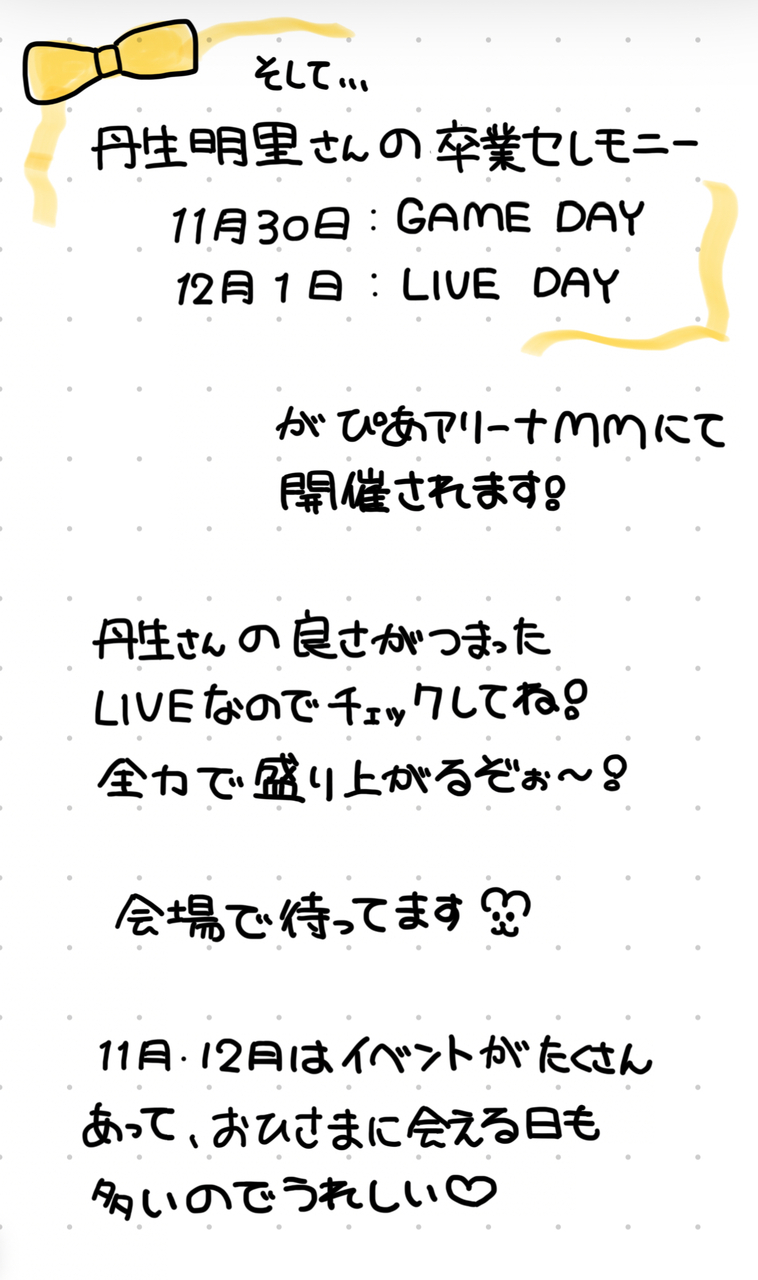 そして...
丹生明里さんの卒業セレモニー
11月30日：GAME DAY
12月1日：LIVE DAY
がぴあアリーナMMにて
開催されます!
丹生さんの良さがつまった
LIVEなのでチェックしてね!
全力で盛り上がるぞぉ〜!
会場で待ってます
11月・12月はイベントがたくさん
あって、おひさまに会える日も
多いのでうれしい♡